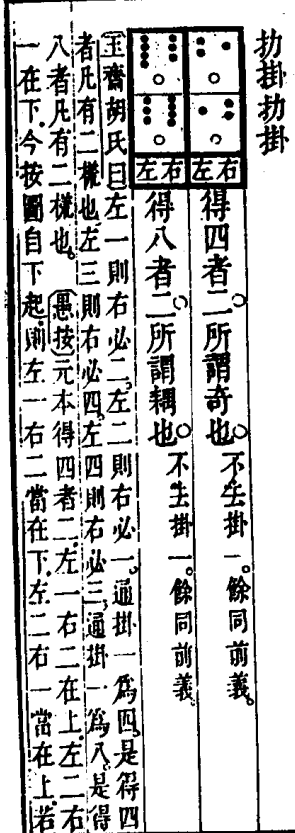 扐掛扐掛
右左
得四者二所謂奇也不去掛一餘同前義
右左
得八者二所謂耦也不去掛一餘同前義
玉齋胡氏曰左一則右必二左二則右必一通掛一爲四是得四
者凡有二㨾也左三則右必四左四則右必三通掛一爲八是得
八者凡有二㨾也愚按元本得四者二左一右二在上左二右
一在下今按圖自下起則左一右二當在下左二右一當在上若